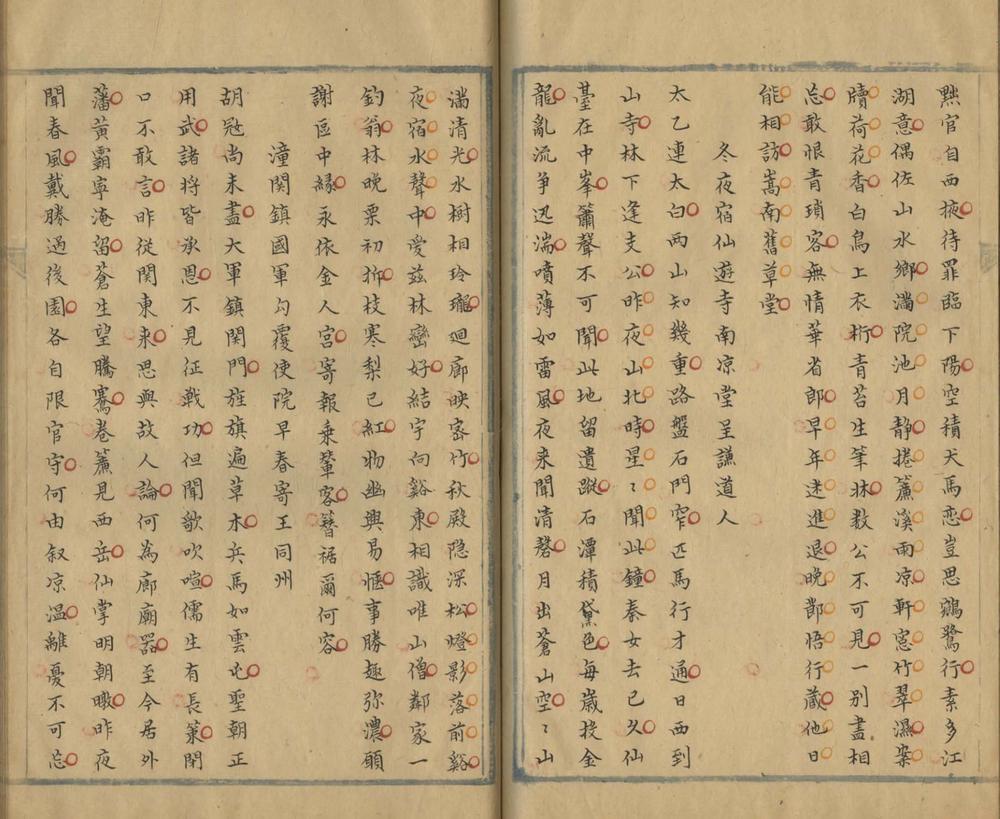 黜官自西掖待罪臨下陽空積犬馬恋豈思鵷鷺行素多江
湖意偶佐山水鄉滿院池月静捲簾溪雨凉軒窓竹翠濕案
牘荷花香白鳥上衣桁青苔生筆牀数公不可見一别盡相
忘敢恨青瑣客無情華省郎早年迷進退晚節悟行蔵他日
能相訪嵩南舊草堂
冬夜宿仙遊寺南凉堂呈謙道人
太乙連太白两山知幾重路盤石門窄匹馬行才通日西到
山寺林下逢支公昨夜山北時星〻聞此鐘秦女去已久仙
臺在中峯簫聲不可聞此地留遺蹤石潭積黛色每歲投金
龍亂流争迅湍噴薄如雷風夜来聞清磬月出蒼山空〻山
滿清光水樹相玲瓏迴廊映宻竹秋殿隐深松燈影落前谿
夜宿水聲中愛兹林巒好結宇向谿東相識唯山僧鄰家一
釣翁林晚栗初拆枝寒梨已紅物幽興易惬事勝趣弥濃願
謝區中緣永依金人宫寄報乗輦客簪裾爾何容
潼関鎮國軍勾覆使院早春寄王同州
胡冦尚未盡大軍鎮関門旌旗遍草木兵馬如雲屯聖朝正
用武諸将皆承恩不見征戦功但聞歌吹喧儒生有長策閉
口不敢言昨従関東来思與故人論何為廊廟器至今居外
藩黄霸寧淹留蒼生望騰騫卷簾見西岳仙掌明朝暾昨夜
聞春風戴勝過後園各自限官守何由叙凉温離憂不可忘